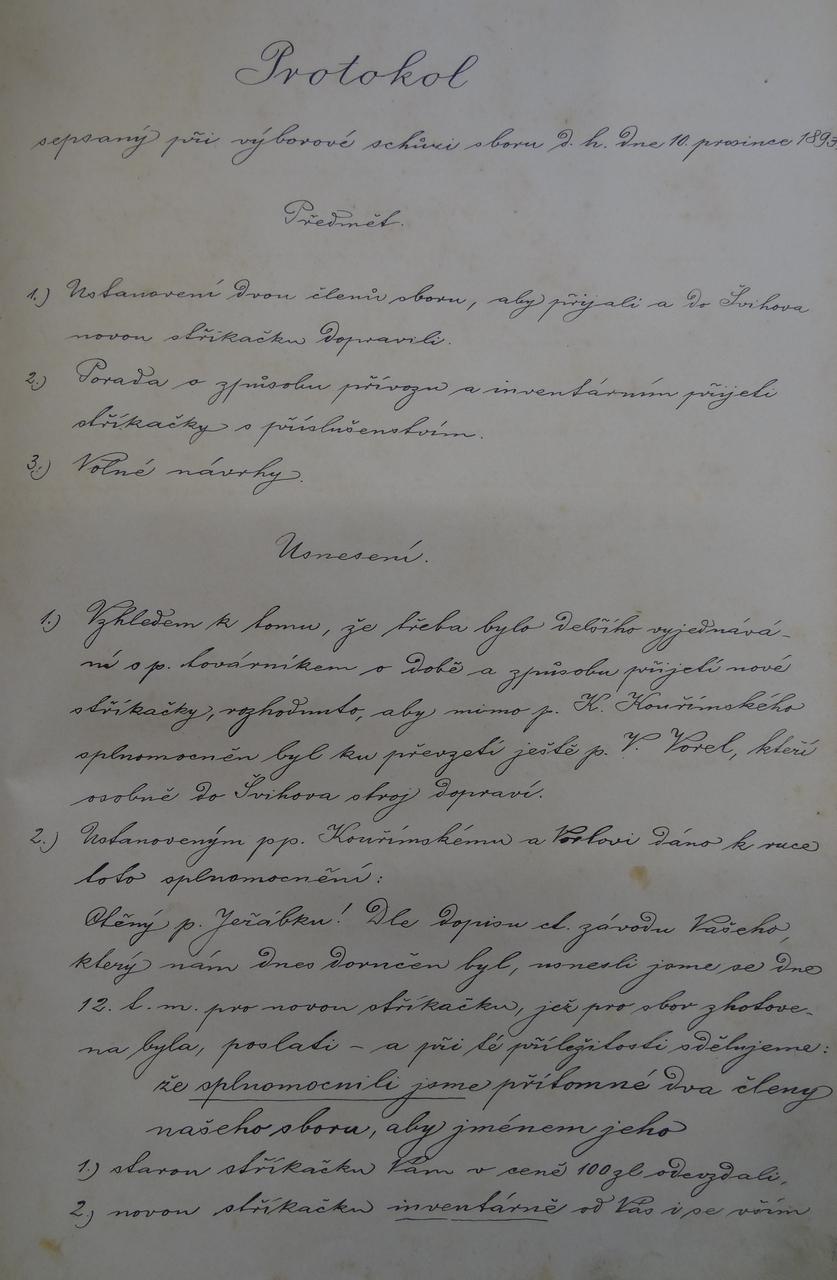 Protokol
sepsaný při výborové schůzi sboru d. h. dne 10. prosince 1893
Předmět.
1.) Ustanovení dvou členů sboru, aby přijali a do Švihova
novou stříkačku dopravili.
2.) Porada o způsobu přívozu a inventárním přijetí
stříkačky s příslušenstvím.
3.) Volné návrhy.
Usnesení.
1.) Vzhledem k tomu, že třeba bylo delšího vyjednává-
ní s p. továrníkem o době a způsobu přijetí nové
stříkačky, rozhodnuto, aby mimo p. K. Kouřímského
splnomocněn byl ku převzetí ještě p. V. Vorel, kteří
osobně do Švihova stroj dopraví.
2.) Ustanoveným pp. Kouřímskému a Vorlovi dáno k ruce
toto splnomocnění:
Ctěný p. Jeřábku! Dle dopisu ct. závodu Vašeho,
který nám dnes doručen byl, usnesli jsme se dne
12. t. m. pro novou stříkačku, jež pro sbor zhotove-
na byla, poslati – a při té příležitosti sdělujeme:
že splnomocnili jsme přítomné dva členy
našeho sboru, aby jménem jeho
1.) starou stříkačku Vám v ceně 100 zl odevzdali,
2.) novou stříkačku inventárně od Vás i se vším